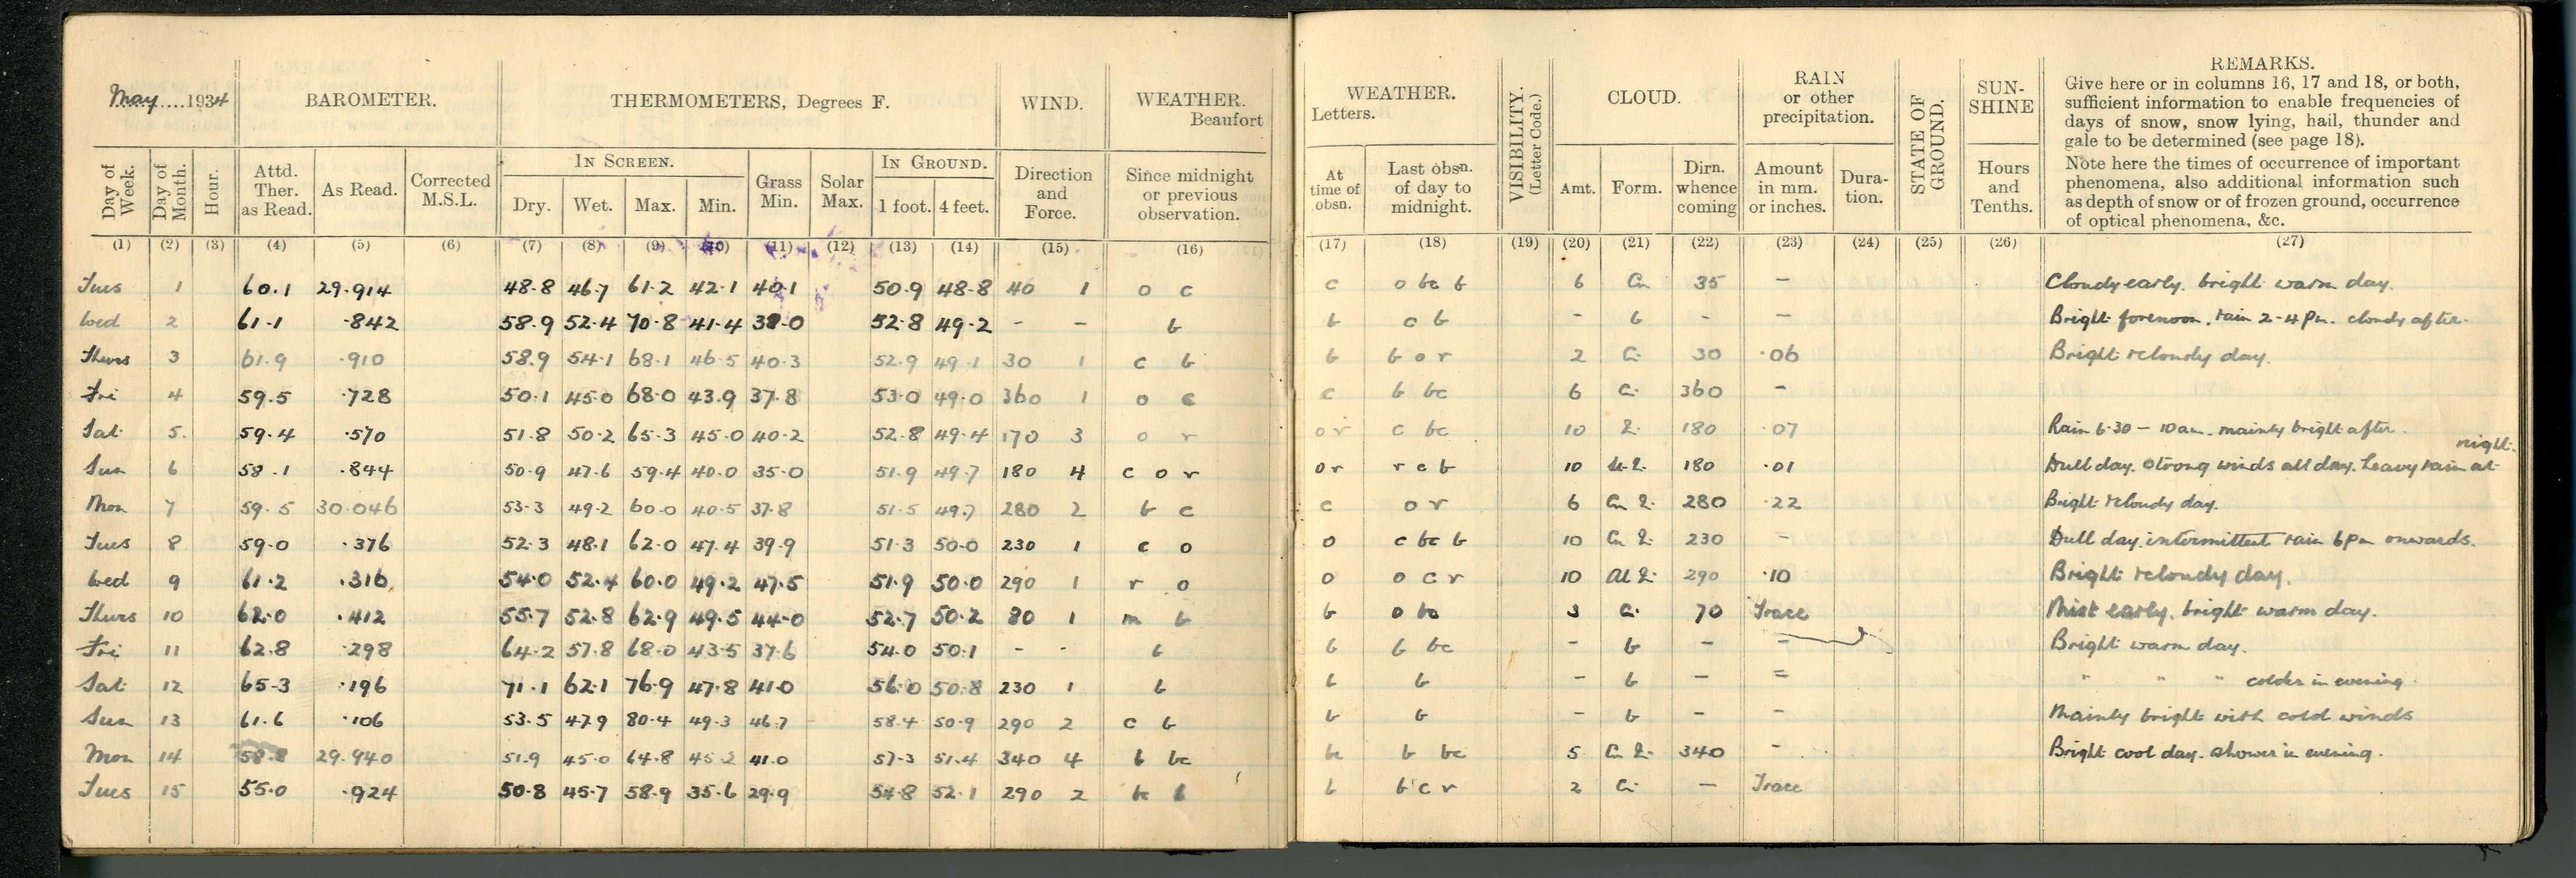 May ....1934 BAROMETER. THERMOMETERS, Degrees F. WIND. WEATHER. Beaufort
Day of Week. Day of Month. Hour. Attd. Ther. as Read. As Read. Corrected M.S.L. IN SCREEN. Dry. Wet. Max. Min. Grass Min. Solar Max. IN GROUND. 1 foot. 4 feet. Direction and Force. Since midnight or previous observation.
(1) (2) (3) (4) (5) (6) (7) (8) (9) (10) (11) (12) (13) (14) (15) (16)
Tues 1 60.1 29.914 48.8 46.7 61.2 42.1 40.1 50.9 48.8 40 1 o c
Wed 2 61.1 .842 58.9 52.4 70.8 41.4 38.0 52.8 49.2 - - b
Thurs 3 61.9 .910 58.9 54.1 68.1 46.5 40.3 52.9 49.1 30 1 c b
Fri 4 59.5 .728 50.1 45.0 68.0 43.9 37.8 53.0 49.0 360 1 o c
Sat 5. 59.4 .570 51.8 50.2 65.3 45.0 40.2 52.8 49.4 170 3 o r
Sun 6 58.1 .844 50.9 47.6 59.4 40.0 35.0 51.9 49.7 180 4 c o r
Mon 7 59.5 30.046 53.3 49.2 60.0 40.5 37.8 51.5 49.7 280 2 b c
Tues 8 59.0 .376 52.3 48.1 62.0 47.4 39.9 51.3 50.0 230 1 c o
Wed 9 61.2 .316 54.0 52.4 60.0 49.2 47.5 51.9 50.0 290 1 r o
Thurs 10 62.0 .412 55.7 52.8 62.9 49.5 44.0 52.7 50.2 80 1 m b
Fri 11 62.8 .298 64.2 57.8 68.0 43.5 37.6 54.0 50.1 - - b
Sat 12 65.3 .196 71.1 62.1 76.9 47.8 41.0 56.0 50.8 230 1 b
Sun 13 61.6 .106 53.5 47.9 80.4 49.3 46.7 58.4 50.9 290 2 c b
Mon 14 58.8 29.940 51.9 45.0 64.8 45.2 41.0 57.3 51.4 340 4 b bc
Tues 15 55.0 .924 50.8 45.7 58.9 35.6 29.9 54.8 52.1 290 2 b
WEATHER. Letters. VISIBILITY. (Letter Code.) CLOUD. RAIN or other precipitation. STATE OF GROUND. SUN-SHINE REMARKS.
Give here or in columns 16, 17 and 18, or both,
sufficient information to enable frequencies of
days of snow, snow lying, hail, thunder and
gale to be determined (see page 18).
Note here the times of occurrence of important
phenomena, also additional information such
as depth of snow or of frozen ground, occurrence
of optical phenomena, &c.
At time of obsn. Last obsn. of day to midnight. Amt. Form. Dirn. whence coming Amount in mm. or inches. Dura-tion. Hours and Tenths.
(17) (18) (19) (20) (21) (22) (23) (24) (25) (26) (27)
c o bc b 6 Cu 35 - Cloudy early. bright warm day.
b c b - b - - Bright forenoon. rain 2-4 pm. cloudy after.
b b o r 2 Ci. 30 .06 Bright & cloudy day.
c b bc 6 Ci. 360 -
o r c bc 10 180 .07 Rain 6.30 - 10 am. mainly bright after.
o r r c b 10 180 .01 Dull day. Strong winds all day. heavy rain at night.
c o r 6 Cu 280 .22 Bright & cloudy day.
o c bc b 10 Cu 230 - Dull day. intermittent rain 6 pm onwards.
o o c r 10 290 .10 Bright & cloudy day.
b o bc 3 Ci. 70 Trace Mist early. bright warm day.
b b bc - b - - Bright warm day.
b b - b - = " " " colder in evening.
b b - b - - Mainly bright with cold winds
bc b bc 5 Cu 340 - Bright cool day. shower in evening.
b b c r 2 Ci. - Trace